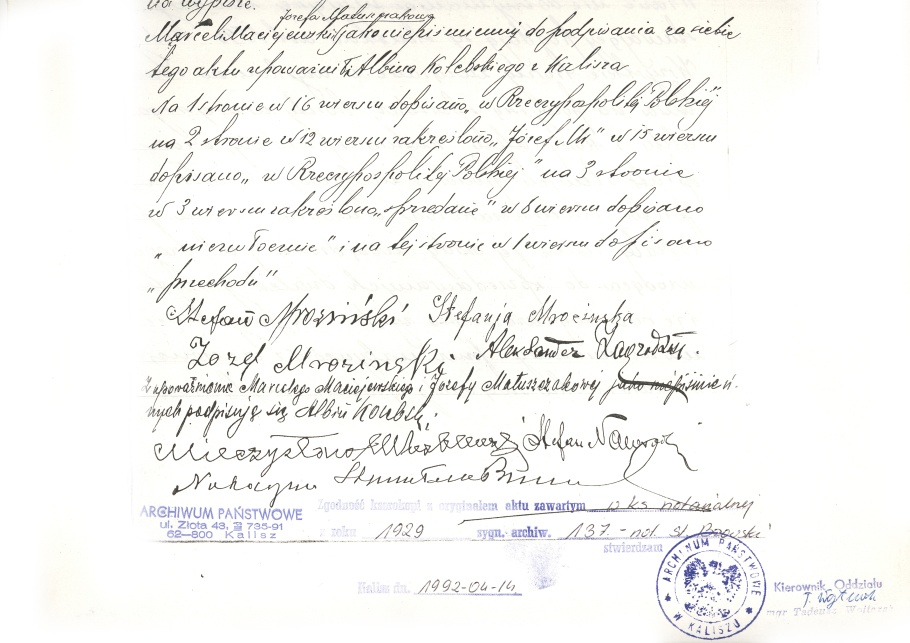 na wypisie.
Józefa Matuszakowa
Marceli Maciejewski jako niepiśmienny do podpisania za siebie
tego aktu upoważnił Albina Kolebskiego z Kalisza
Na 1 stronie w 16 wierszu dopisano „w Rzeczypospolitej Polskiej"
na 2 stronie w 12 wierszu zakreślono „Józef M" w 15 wierszu
dopisano „w Rzeczypospolitej Polskiej" na 3 stronie
w 3 wierszu zakreślono „sprzedanie" w 6 wierszu dopisano
„niezwłocznie" i na tej stronie w 1 wierszu dopisano
„przechodu"
Stefan Mroziński Stefanja Mrozińska
Józef Mroziński Aleksander
Z upoważnienia Marcelego Maciejewskiego i Józefy Matuszczakowej jako niepiśmien-
nych podpisuję się Albin
Mieczysław Stefan
Notaryusz Stanisław
ARCHIWUM PAŃSTWOWE
ul. Złota 43, 735-91
62-800 Kalisz
Zgodność kserokopi z oryginałem aktu zawartym w ks. notarialnej
z roku 1929 sygn. archiw. 137. - not. St.
stwierdzam
ARCHIWUM PAŃSTWOWE W KALISZU
Kalisz dn. 1992-04-14
Kierownik Oddziału
mgr Tadeusz